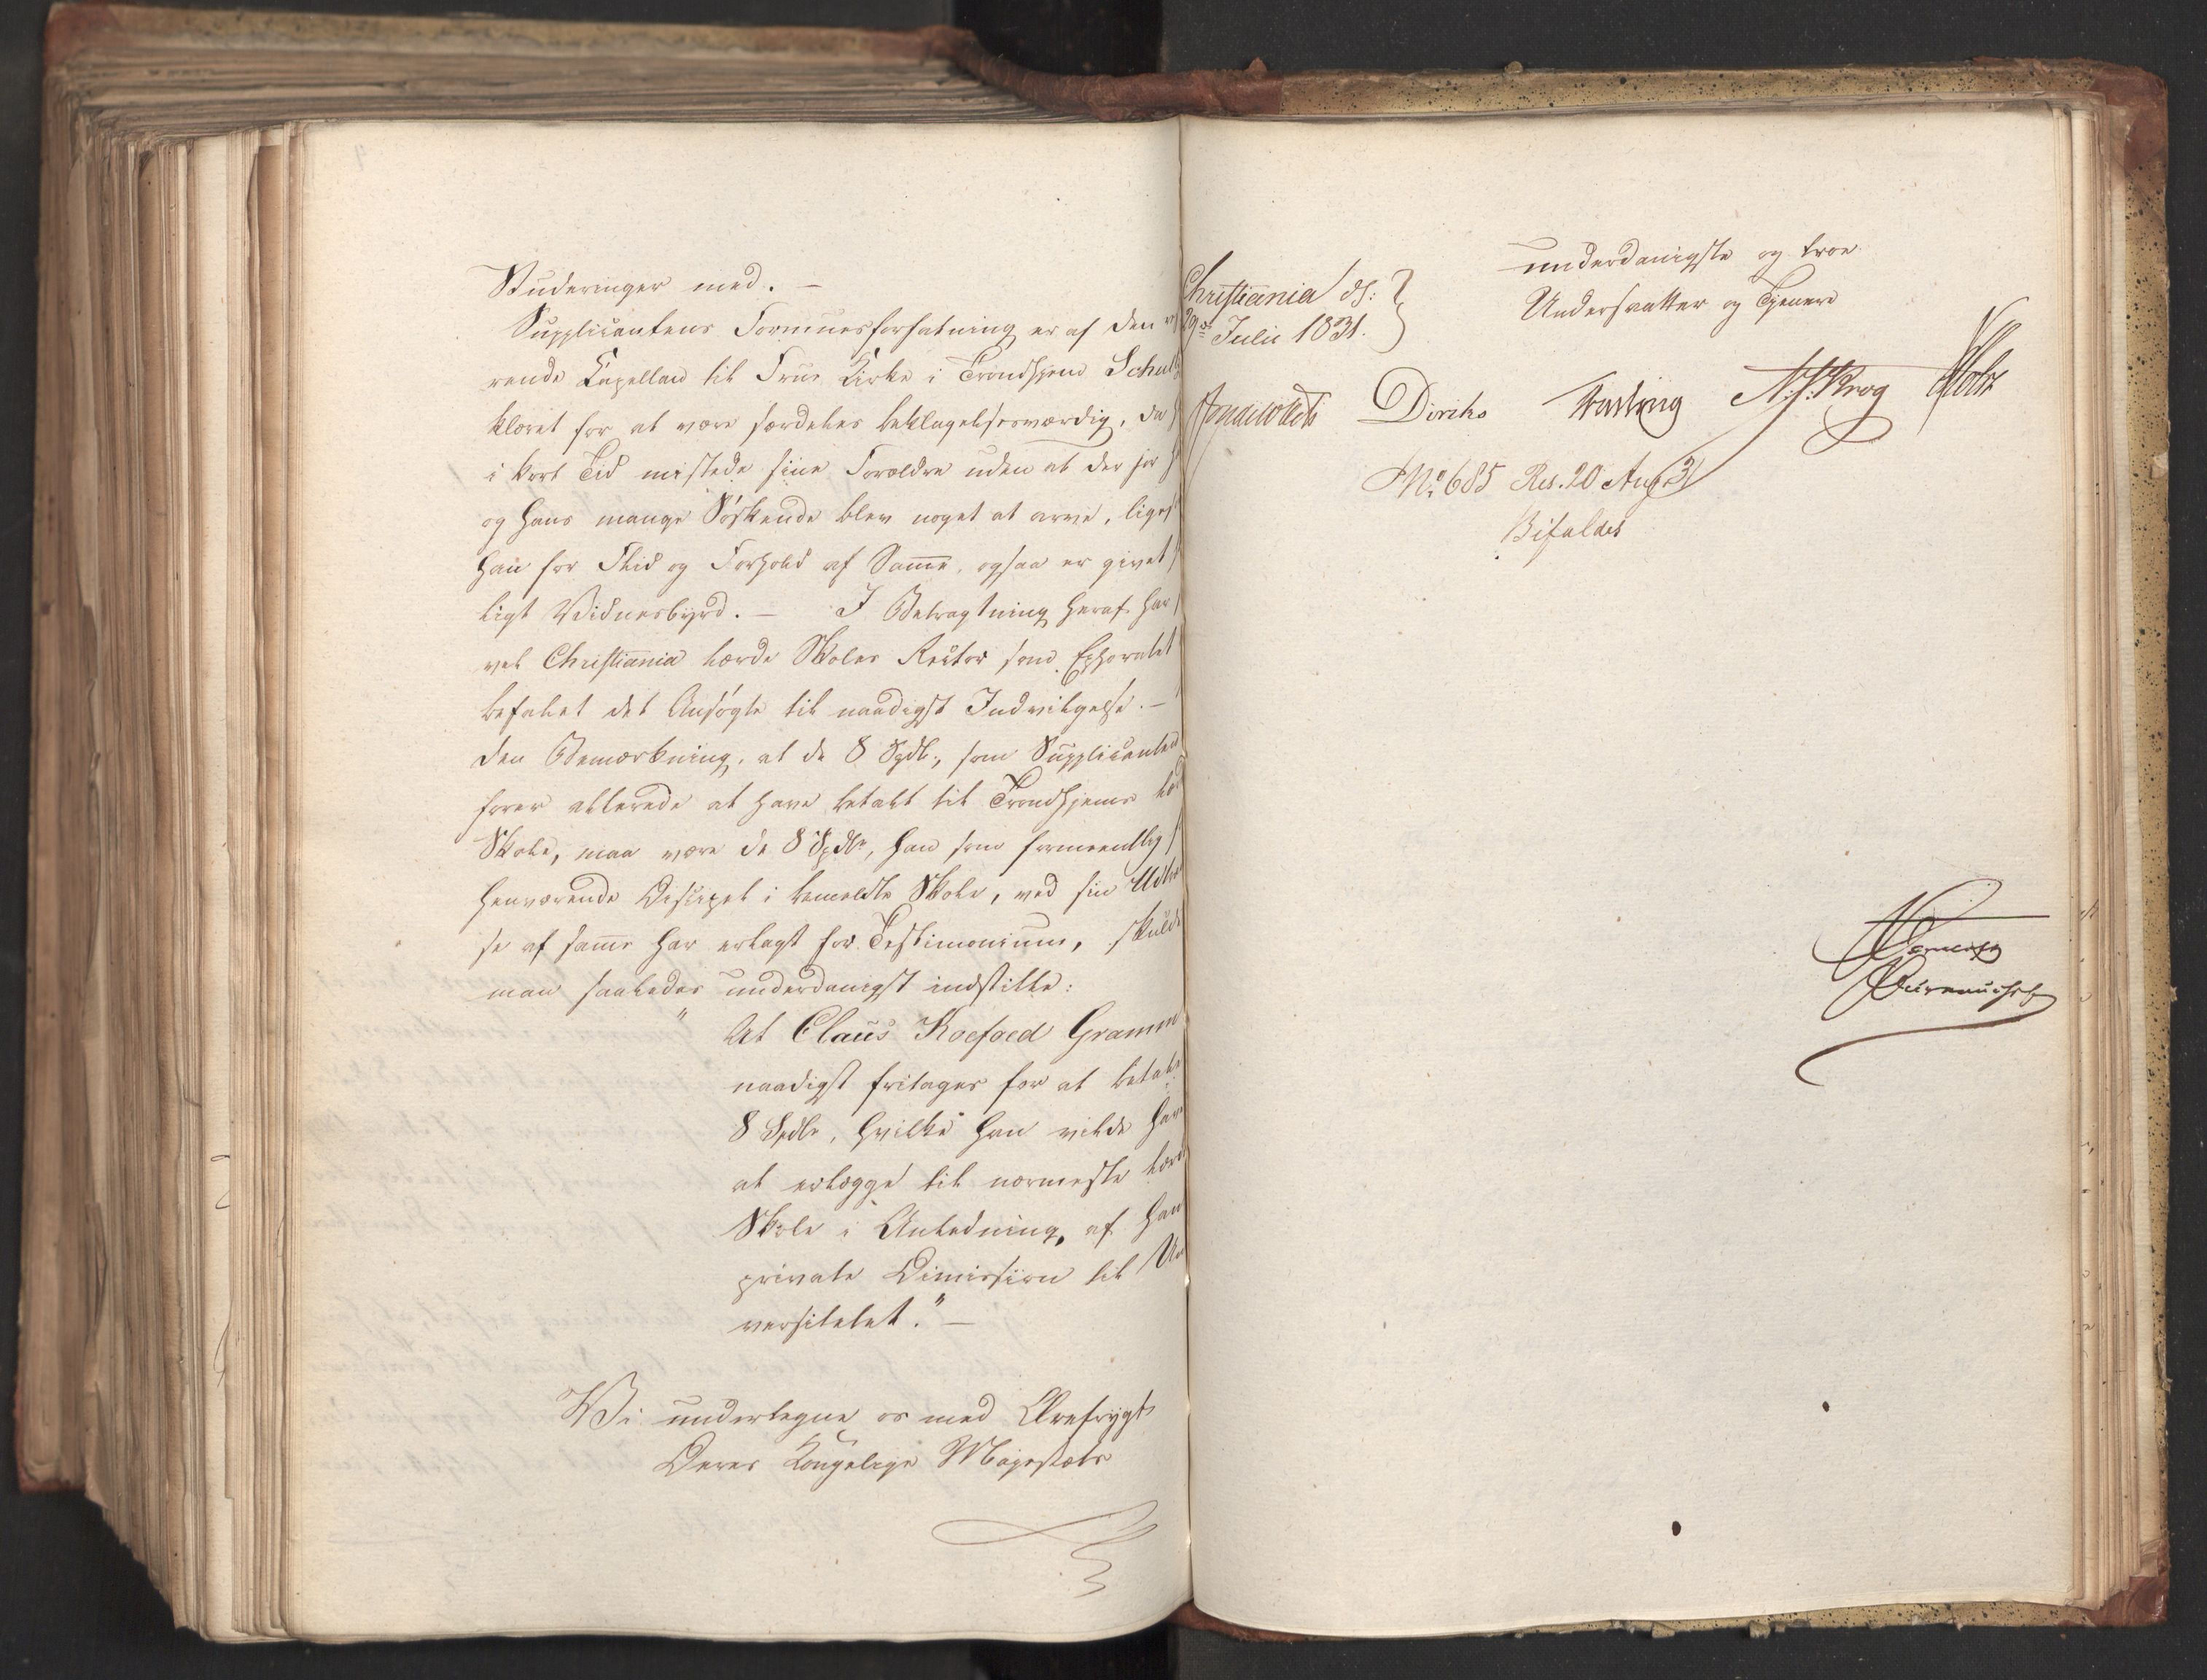 Studeringer med. —
Supplicantens Formuesforfatning er af den
rende Capellan til Frue Kirke i Trondhjem Schul
klæret for at være særdeles beklagelsesværdig, da
i kort Tid mistede sine Forældre uden at der for
og hans mange Søskende blev noget at arve, liges
han for Flid og Forhold af Samme, ogsaa er givet
ligt Vidnesbyrd. — I Betragtning heraf har
vel Christiania lærde Skoles Rector som Ephoratet
befalet det Ansøgte til naadigst Indvilgelse. —
den Bemærkning, at de 8 Spdlr, som Supplicanten
fører allerede at have betalt til Trondhjems
Skole, maa være de 8 Spdlr, han som formeentlig
henværende Discipel i bemeldte Skole, ved sin Udtr
se af samme har erlagt for Testimonium, skulde
man saaledes underdanigst indstille:
" At Claus Koefoed Gramm
naadigst fritages for at betale
8 Spdlr, hvilke han vilde have
at erlægge til nærmeste lærd
Skole i Anledning af han
private Dimission til Un
versitetet." —
Vi undertegne os med Ærefrygt
Deres Kongelige Majestæts
Christiania d:
29de Julii 1831.
underdanigste og troe
Undersaatter og Tjenere
Diriks N. J. Krog Holst
No 685 Res. 20 Aug 31
Bifaldes